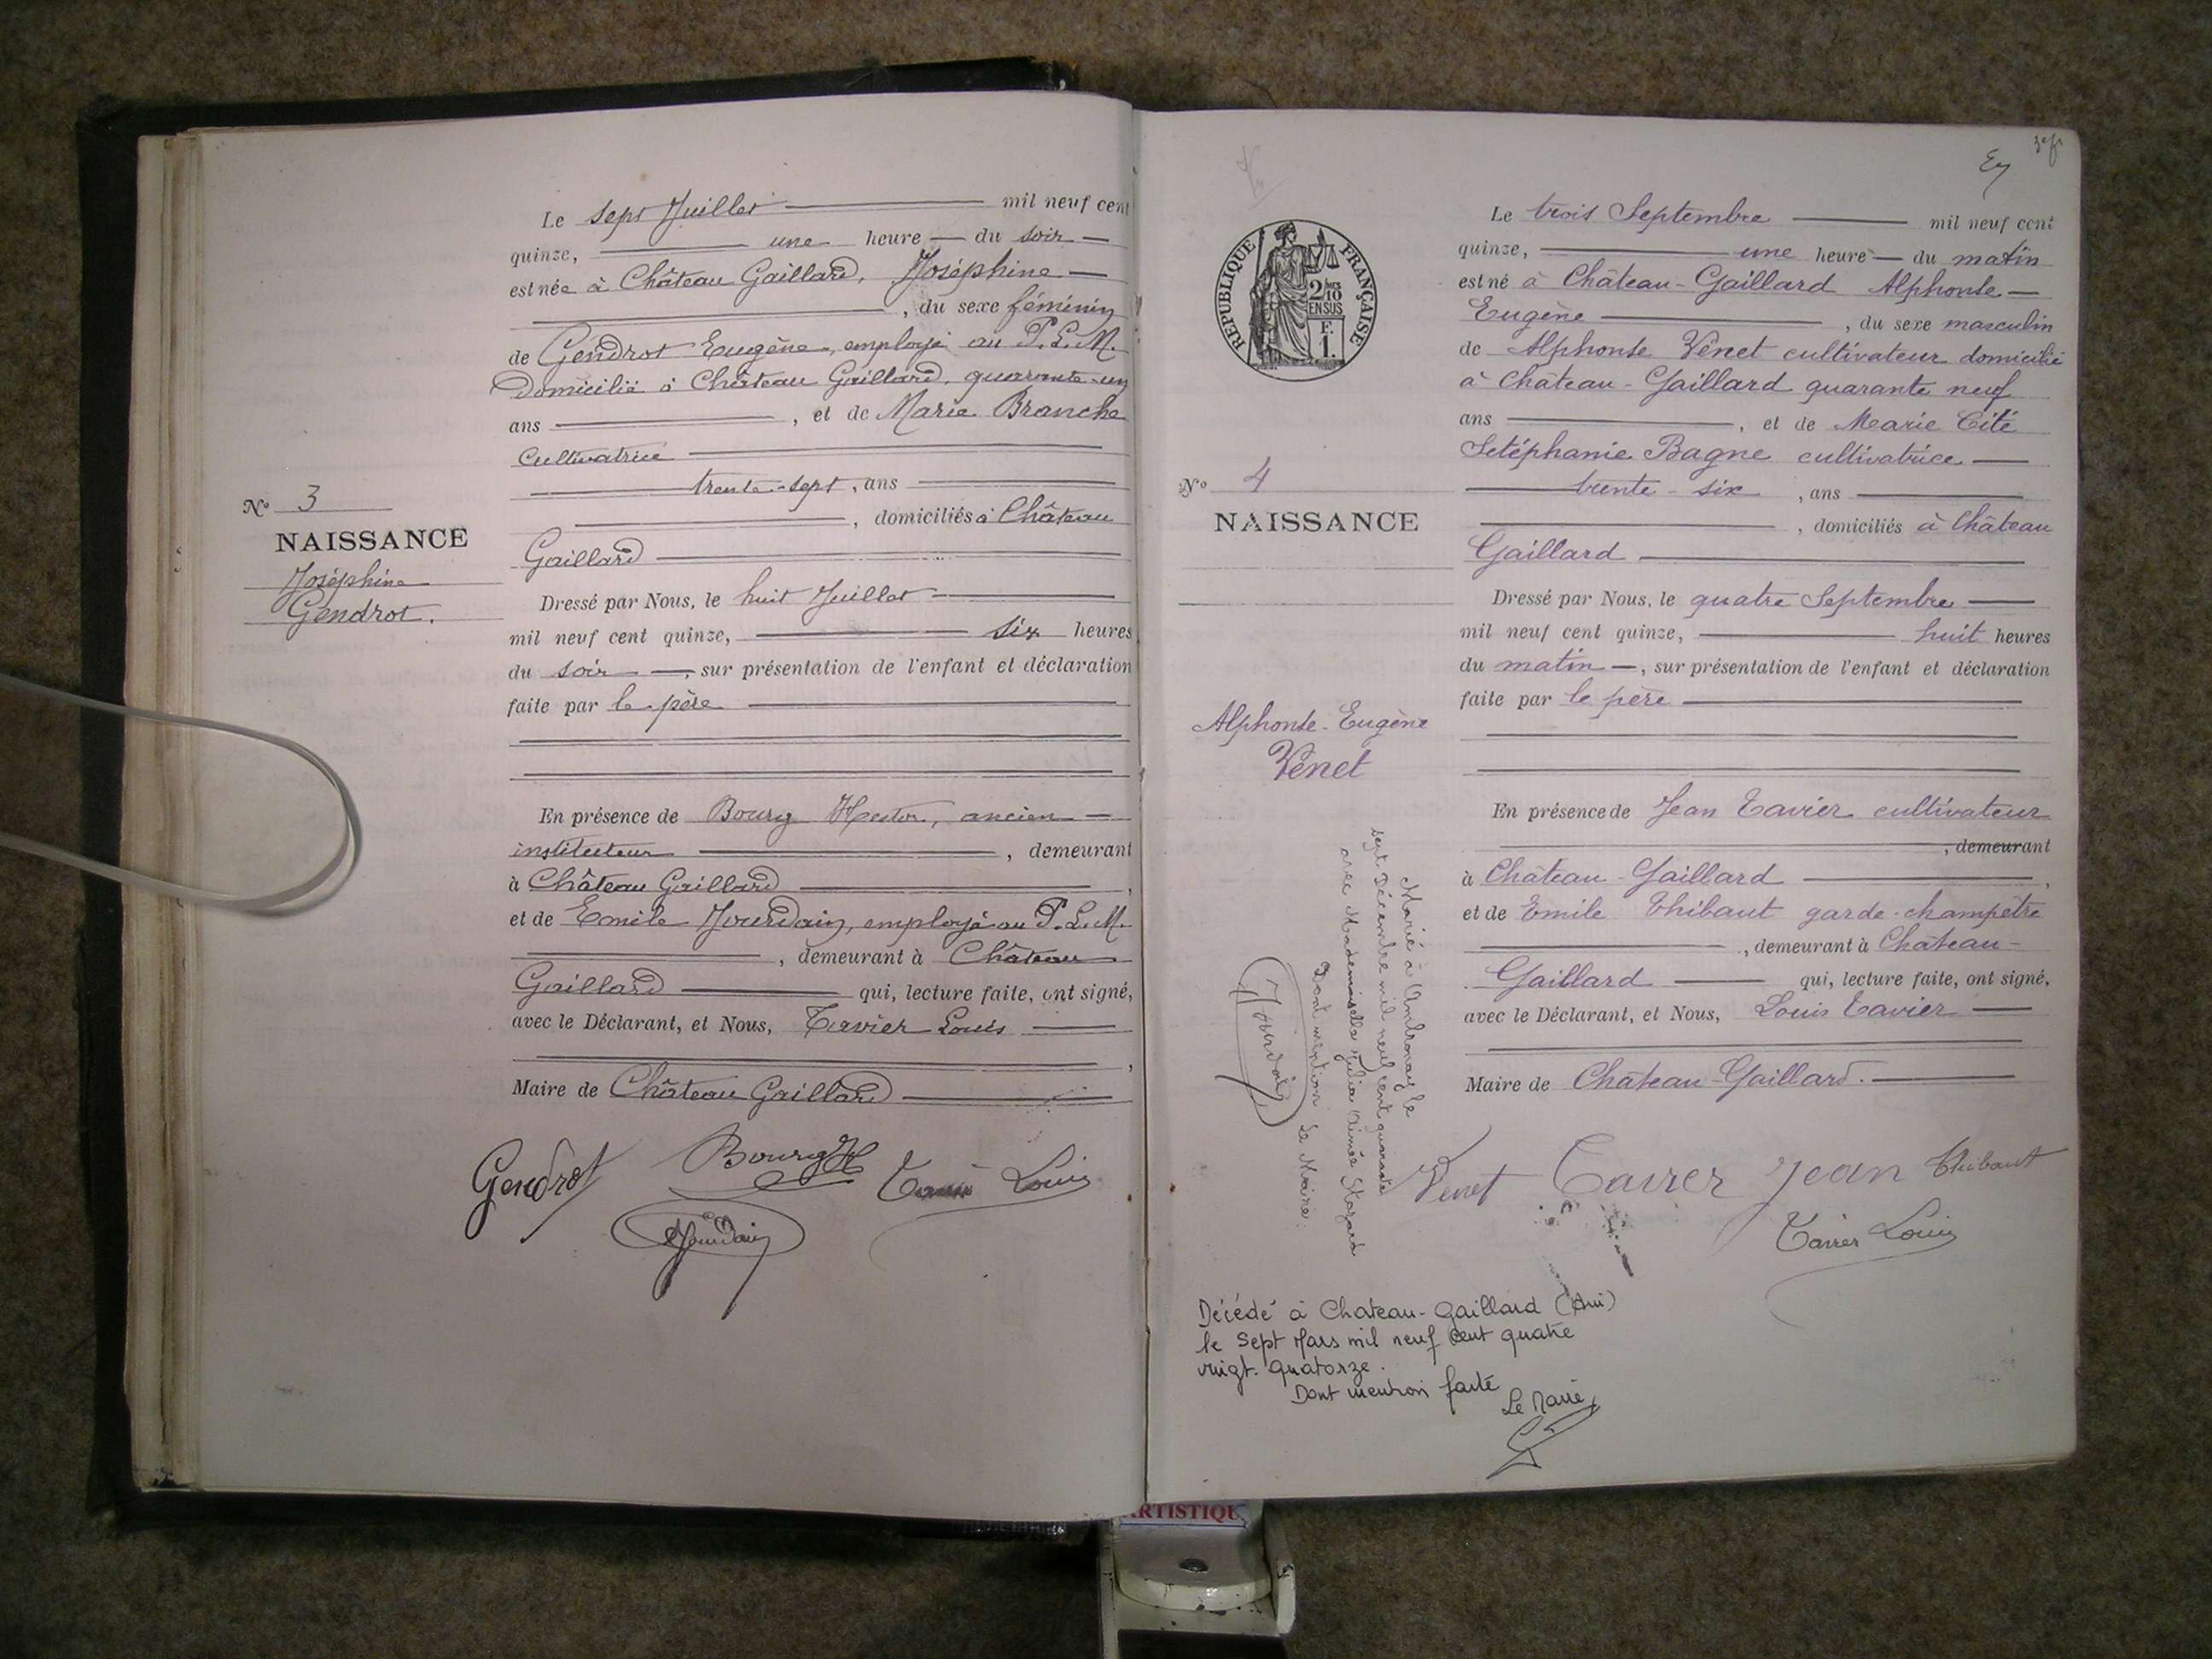 Le sept Juillet mil neuf cent
quinze, une heure du soir
est née à Château Gaillard, Joséphine
, du sexe féminin
de Gendrot Eugène, employé au P.L.M.
Domicilié à Château Gaillard, quarante-un
ans , et de Marie Branche
Cultivatrice
trente-sept, ans
, domiciliés à Château
Gaillard
Dressé par Nous, le huit Juillet
mil neuf cent quinze, six heures
du soir , sur présentation de l'enfant et déclaration
faite par le père
En présence de Bourg Hector, ancien
instituteur , demeurant
à Château Gaillard ,
et de Emile Jourdain, employé au P.L.M.
, demeurant à Château
Gaillard qui, lecture faite, ont signé,
avec le Déclarant, et Nous, Tavier Louis
,
Maire de Château Gaillard
Nº 3
NAISSANCE
Joséphine
Gendrot.
Gendrot Bourg H Louis
Jourdain
Le trois Septembre mil neuf cent
quinze, une heure du matin
est né à Château-Gaillard Alphonse
Eugène , du sexe masculin
de Alphonse Venet cultivateur domicilié
à Château-Gaillard quarante neuf
ans , et de Marie Cité
Setéphanie Bagne cultivatrice
trente-six , ans
, domiciliés à Château
Gaillard
Dressé par Nous, le quatre Septembre
mil neuf cent quinze, huit heures
du matin , sur présentation de l'enfant et déclaration
faite par le père
En présence de Jean Tavier cultivateur
, demeurant
à Château-Gaillard ,
et de Emile Thibaut garde-champêtre
, demeurant à Château-
Gaillard qui, lecture faite, ont signé,
avec le Déclarant, et Nous, Louis Tavier
Maire de Château-Gaillard.
RÉPUBLIQUE FRANÇAISE
2/10
EN SUS
F.
1.
Nº 4
NAISSANCE
Alphonse-Eugène
Venet
Marié à Ambronay le
sept Décembre mil neuf cent quarante
avec Mademoiselle Julia Aimée
Dont mention le Maire:
Jourdain
Venet Tavier Jean Thibaut
Tavier Louis
Décédé à Chateau-Gaillard (Ain)
le Sept Mars mil neuf cent quatre
vingt. quatorze.
Dont mention faite
Le Maire,
ARTISTIQU